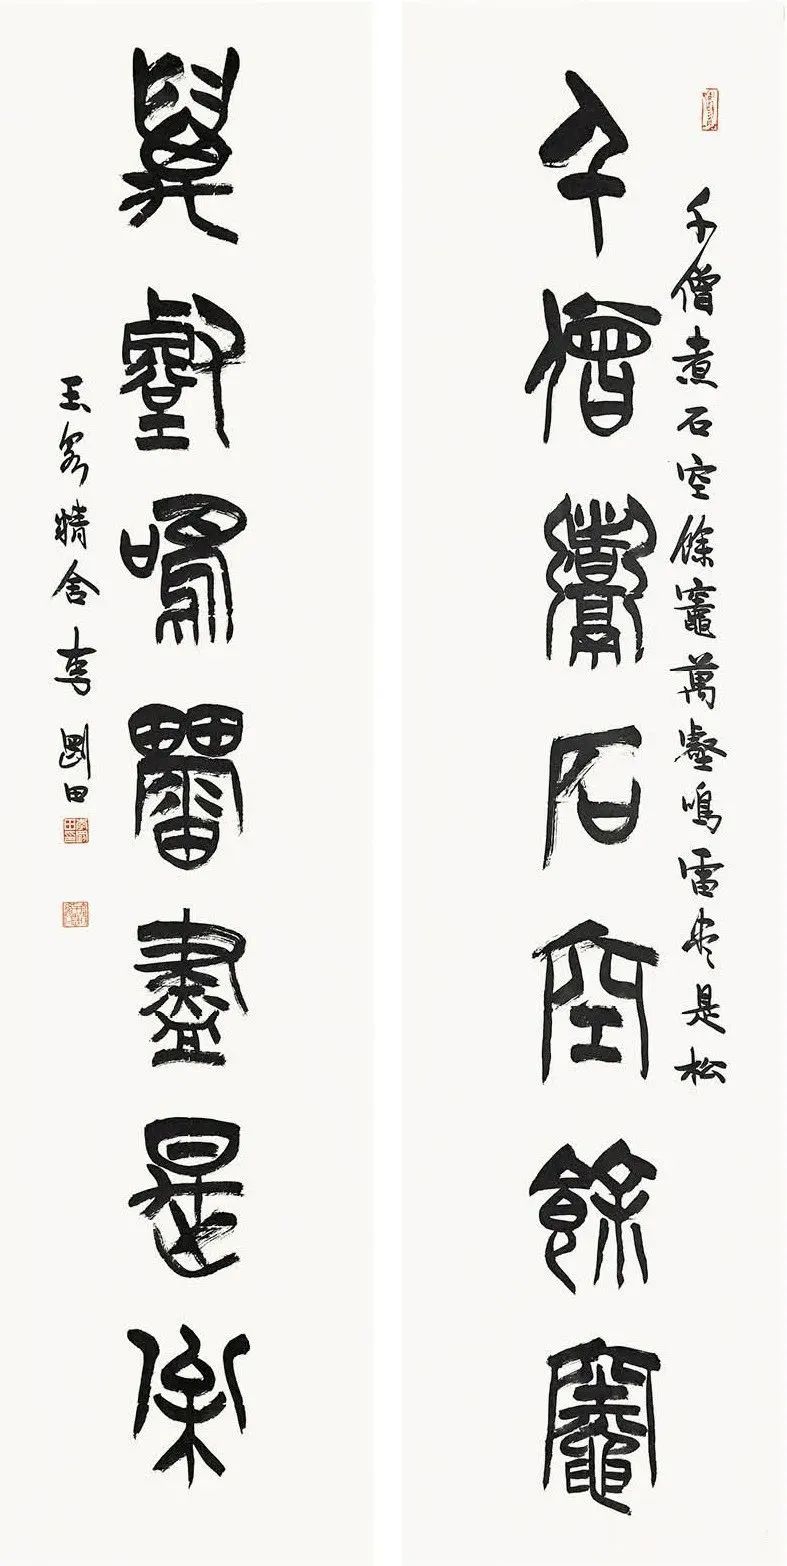 千僧煮石空餘竈萬壑鳴雷盡是松
千僧煮石空餘竈
萬壑鳴雷盡是松
李剛田